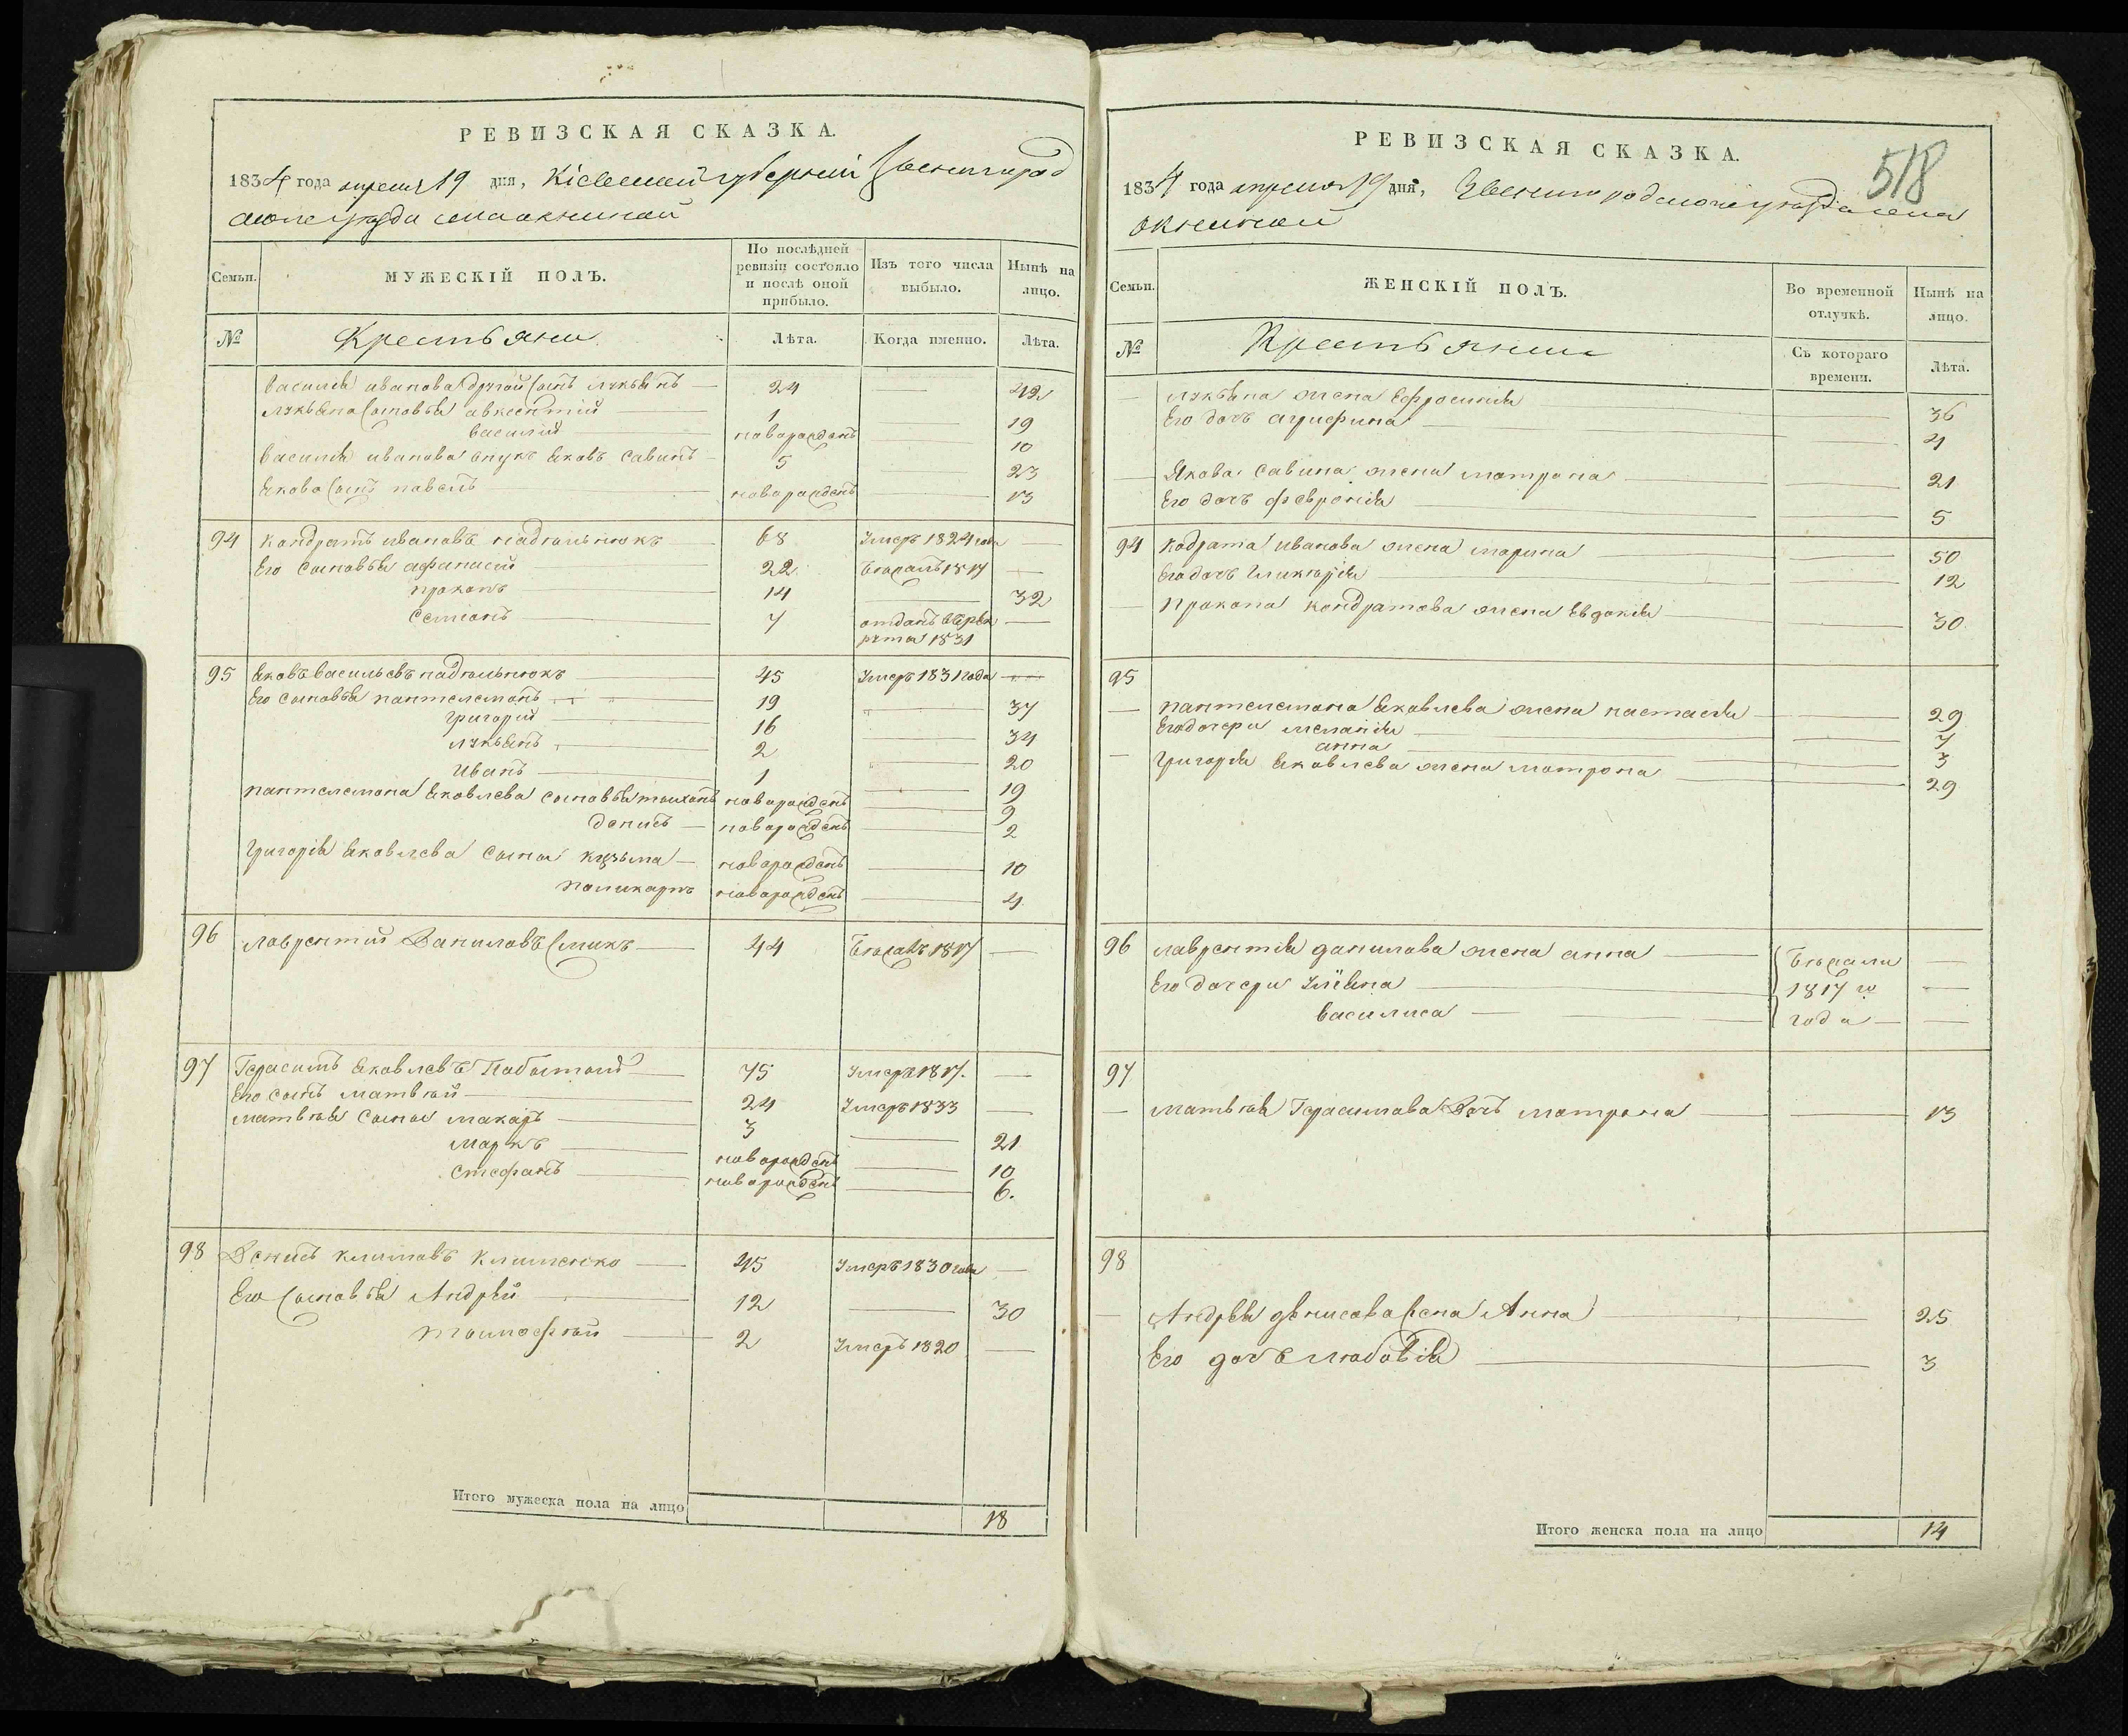 РЕВИЗСКАЯ СКАЗКА.
1834 года апреля 19 дня, Кіевской губерніи Звенигород
ского уезда села окниной
Семьи.
МУЖЕСКІЙ ПОЛЪ.
По послѣдней ревизіи состояло и послѣ оной прибыло.
Изъ того числа выбыло.
Нынѣ на лицо.
№ Крестьяни Лѣта. Когда именно. Лѣта.
василія иванова другой сынъ лукьянъ 24 — 42
лукьяна сыновья авксентій 1 — 19
василій новорожденъ — 10
василія иванова внукъ яковъ савинъ 5 — 23
якова сынъ павелъ новорожденъ — 13
94 кондратъ ивановъ 68 Умеръ 1824 года —
Его сыновья афанасій 22 бежалъ 1817 —
прокопъ 14 — 32
семіонъ 7 отданъ врекрута 1831 —
95 яковъ васильевъ 45 Умеръ 1831 года —
Его сыновья пантелемонъ 19 — 37
григорій 16 — 34
лукьянъ 2 — 20
иванъ 1 — 19
пантелемона яковлева сыновья тихонъ новорожденъ — 9
денисъ новорожденъ — 2
григорія яковлева сыны кузьма новорожденъ — 10
поликарпъ новорожденъ — 4
96 лаврентій Даниловъ Смикъ 44 бежалъ 1817 —
97 Герасимъ яковлевъ 75 Умеръ 1817. —
Его сынъ матвѣй 24 Умеръ 1833 —
матвѣя сыны макаръ 3 — 21
маркъ новорожденъ — 10
стефанъ новорожденъ — 6.
98 Денисъ климовъ клименко 45 Умеръ 1830 года —
Его сыновья Андрѣй 12 — 30
тимофѣй 2 Умеръ 1820 —
Итого мужеска пола на лицо 18
518
РЕВИЗСКАЯ СКАЗКА.
1834 года апреля 19 дня, Звенигородского уезда села
окниной
Семьи.
ЖЕНСКІЙ ПОЛЪ.
Во временной отлучкѣ.
Нынѣ на лицо.
№ Крестьяни Съ котораго времени. Лѣта.
— лукьяна жена Ефросинія — 36
Его дочь агрифина — 4
— Якова савина жена матрона — 21
Его дочь февронія — 5
94 кодрата иванова жена марина — 50
Его дочь гликерія — 12
— прокопа кондратова жена евдокія — 30
95
— пантелемона яковлева жена настасія — 29
Его дочери меланія — 7
анна — 3
— григорія яковлева жена матрона — 29
96 лаврентія данилова жена анна бежали —
Его дочери Уліяна 1817 го —
василиса года —
97
— матвѣя Герасимова Дочь матрона — 13
98
— Андрѣя денисова жена Анна — 25
Его дочь любовія — 3
Итого женска пола на лицо 14